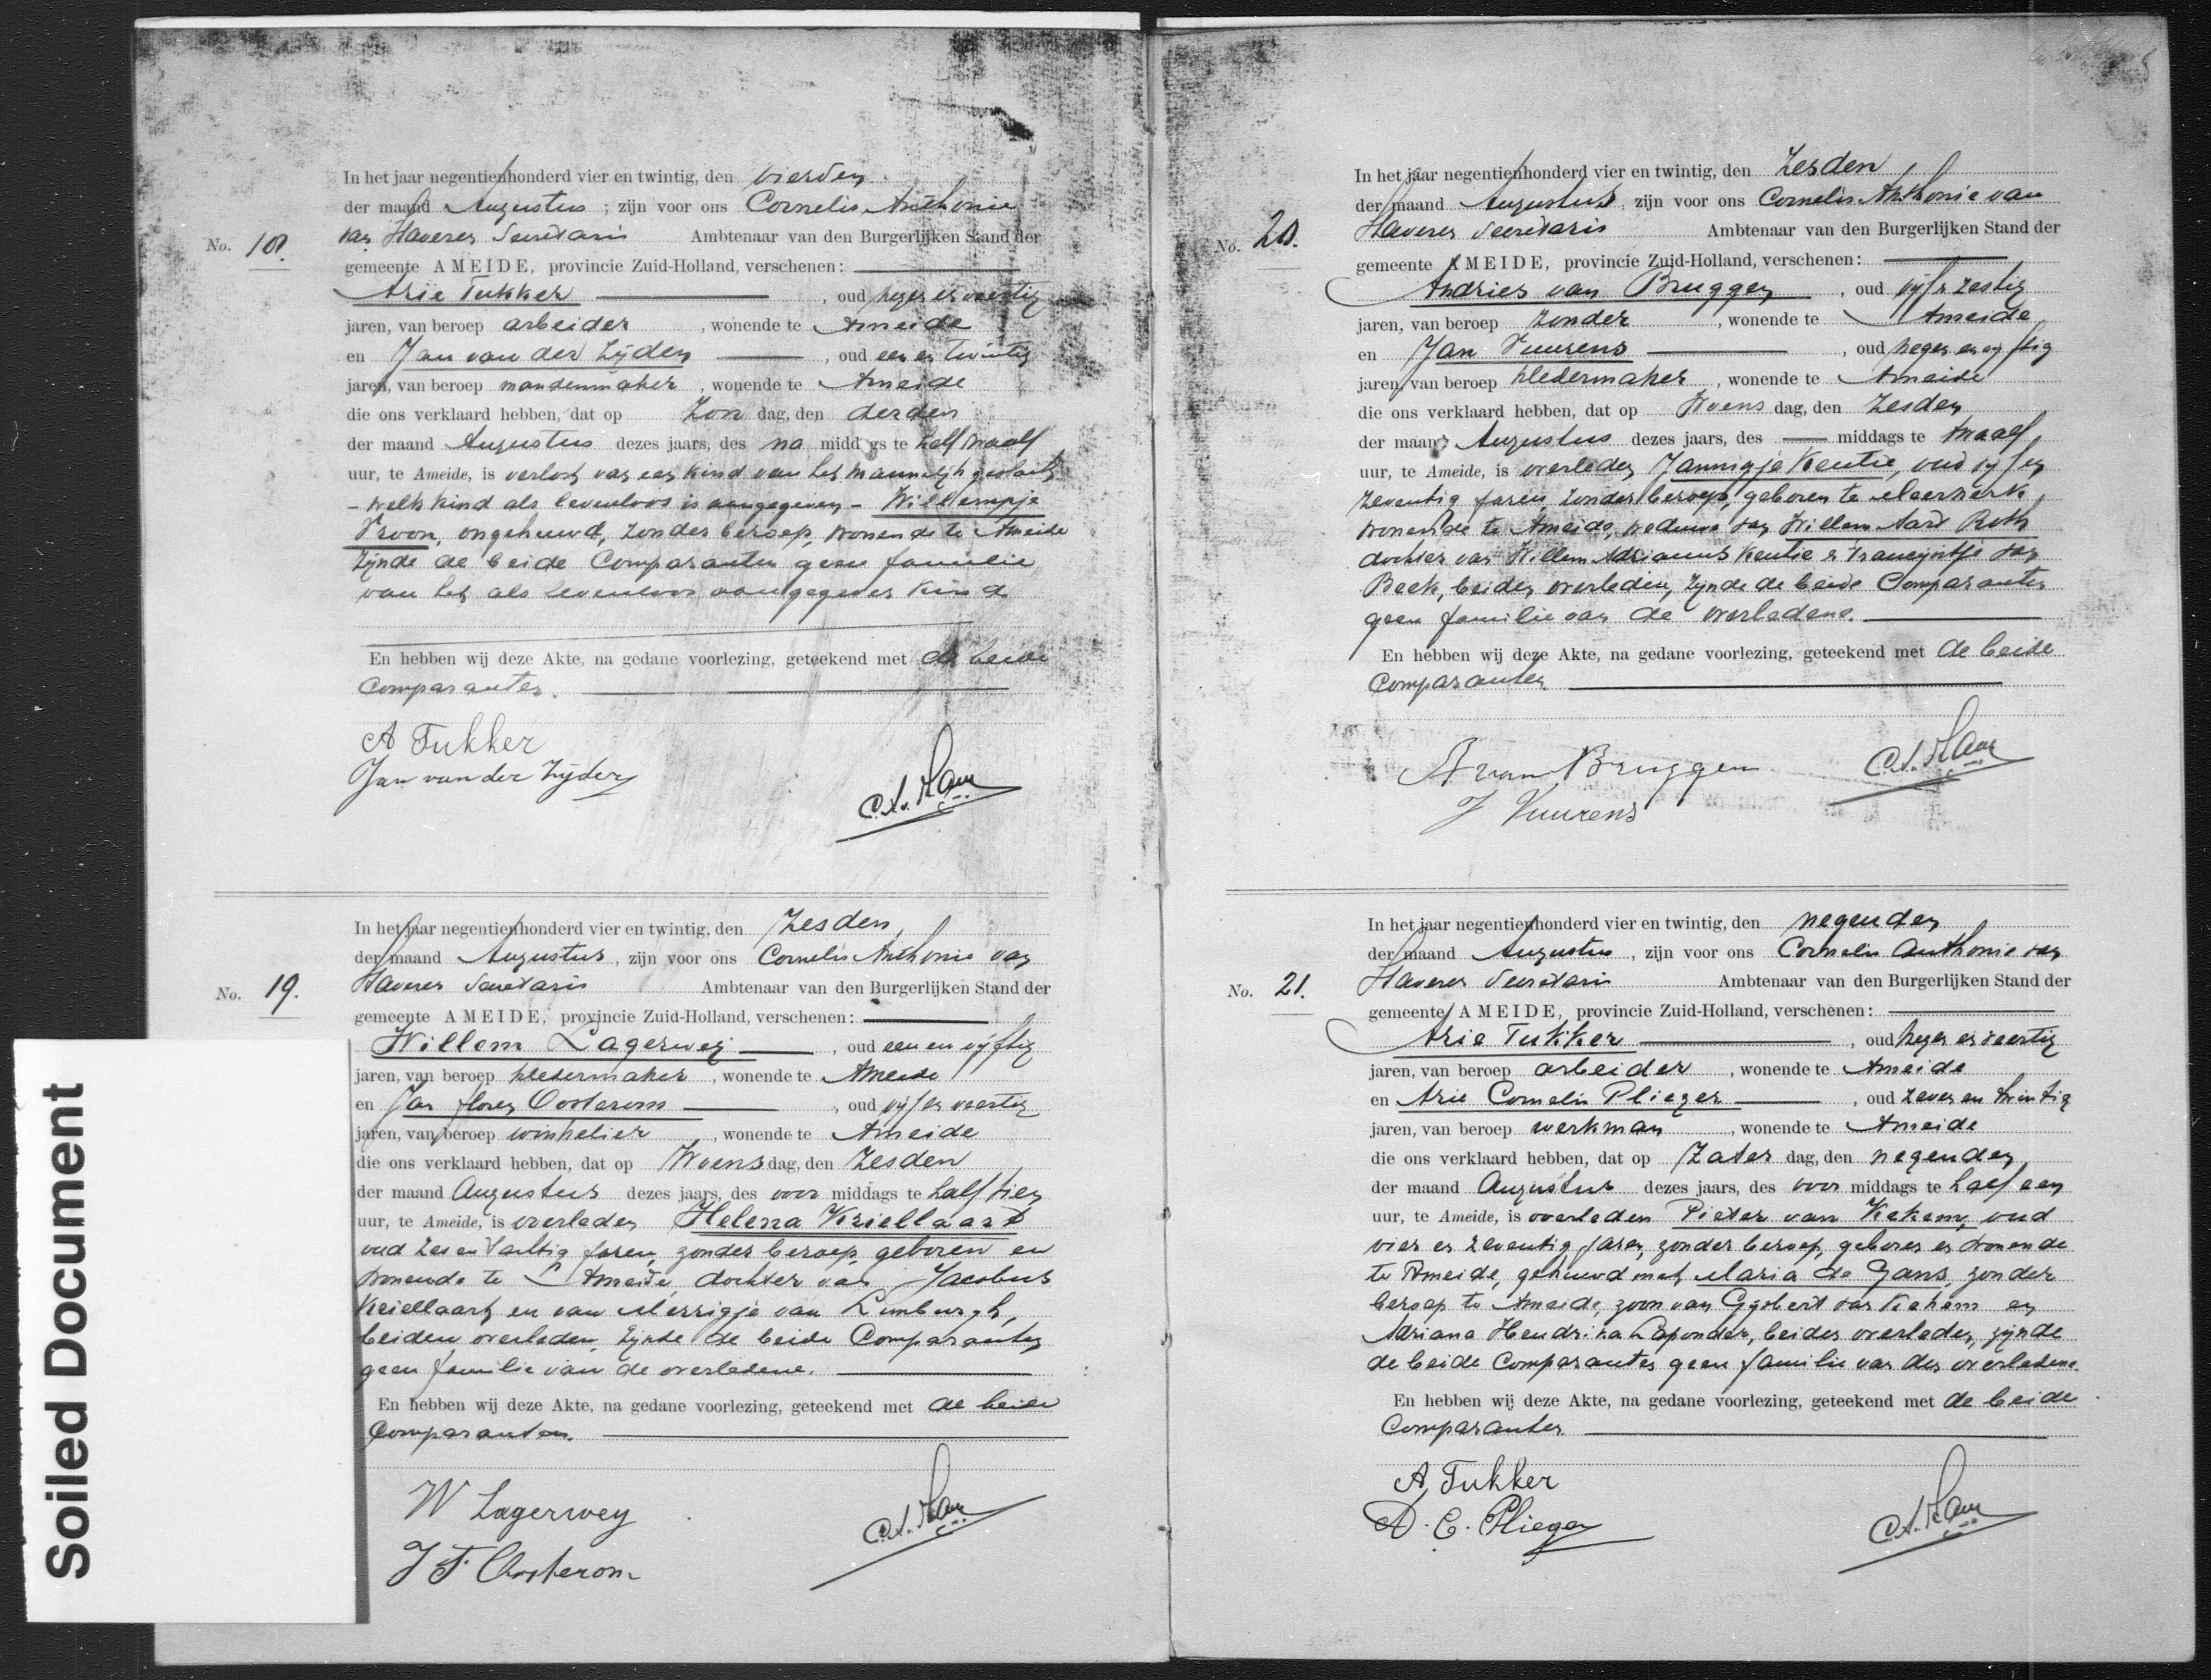 In het jaar negentienhonderd vier en twintig, den vierden
der maand Augustus ; zijn voor ons Cornelis Anthonie
van Haveren Secretaris Ambtenaar van den Burgerlijken Stand der
No. 18.
gemeente AMEIDE, provincie Zuid-Holland, verschenen:
Arie Tukker , oud negen en veertig
jaren, van beroep arbeider , wonende te Ameide
en Jan van der Zijden , oud een en twintig
jaren, van beroep mandenmaker , wonende te Ameide
die ons verklaard hebben, dat op Zon dag, den derden
der maand Augustus dezes jaars, des na middags te half twaalf
uur, te Ameide, is verlost van een kind van het mannelijk geslacht,
- welk kind als levenloos is aangegeven - Willempje
Kroon, ongehuwd, zonder beroep, wonende te Ameide
zijnde de beide Comparanten geen familie
van het als levenloos aangegeven kind
En hebben wij deze Akte, na gedane voorlezing, geteekend met de beide
Comparanten.
A Tukker
Jan van der Zijden
In het jaar negentienhonderd vier en twintig, den Zesden
der maand Augustus , zijn voor ons Cornelis Anthonie van
Haveren Secretaris Ambtenaar van den Burgerlijken Stand der
No. 19.
gemeente AMEIDE, provincie Zuid-Holland, verschenen:
Willem Lagerweij , oud een en vijftig
jaren, van beroep kledermaker , wonende te Ameide
en Jan floren Oosterom , oud vijf en veertig
jaren, van beroep winkelier , wonende te Ameide
die ons verklaard hebben, dat op Woens dag, den Zesden
der maand Augustus dezes jaars, des voor middags te half tien
uur, te Ameide, is overleden Helena Kriellaart
oud zes en tachtig jaren, zonder beroep, geboren en
wonende te Ameide, dochter van Jacobus
Kriellaart en van Merrigje van Limburgh,
beiden overleden, zijnde de beide Comparanten
geen familie van de overledene.
En hebben wij deze Akte, na gedane voorlezing, geteekend met de beide
Comparanten.
W Lagerwey
J F Oosterom
In het jaar negentienhonderd vier en twintig, den Zesden
der maand Augustus , zijn voor ons Cornelis Anthonie van
Haveren Secretaris Ambtenaar van den Burgerlijken Stand der
No. 20.
gemeente AMEIDE, provincie Zuid-Holland, verschenen:
Andries van Bruggen , oud vijf & zestig
jaren, van beroep zonder , wonende te Ameide
en Jan Vuurens , oud negen en vijftig
jaren, van beroep kledermaker , wonende te Ameide
die ons verklaard hebben, dat op Woens dag, den Zesden
der maand Augustus dezes jaars, des middags te twaalf
uur, te Ameide, is overleden Jannigje Kentie, oud vijf en
zeventig jaren, zonder beroep, geboren te Meerkerk,
wonende te Ameide, weduwe van Willem Aart Roth
dochter van Willem Adrianus Kentie & Francyntje van
Beek, beiden overleden, zijnde de beide Comparanten
geen familie van de overledene.
En hebben wij deze Akte, na gedane voorlezing, geteekend met de beide
Comparanten
A van Bruggen
J Vuurens
In het jaar negentienhonderd vier en twintig, den negenden
der maand Augustus , zijn voor ons Cornelis Anthonie van
Haveren Secretaris Ambtenaar van den Burgerlijken Stand der
No. 21.
gemeente AMEIDE, provincie Zuid-Holland, verschenen:
Arie Tukker , oud negen en veertig
jaren, van beroep arbeider , wonende te Ameide
en Arie Cornelis Plieger , oud zeven en twintig
jaren, van beroep werkman , wonende te Ameide
die ons verklaard hebben, dat op Zater dag, den negenden
der maand Augustus dezes jaars, des voor middags te half een
uur, te Ameide, is overleden Pieter van Kekem, oud
vier en zeventig jaren, zonder beroep, geboren en wonende
te Ameide, gehuwd met Maria de Gans, zonder
beroep te Ameide, zoon van Gysbert van Kekem en
Adriana Hendrika Laponder, beiden overleden, zijnde
de beide Comparanten geen familie van den overledene.
En hebben wij deze Akte, na gedane voorlezing, geteekend met de beide
Comparanten
A. Tukker
A. C. Plieger
Soiled Document